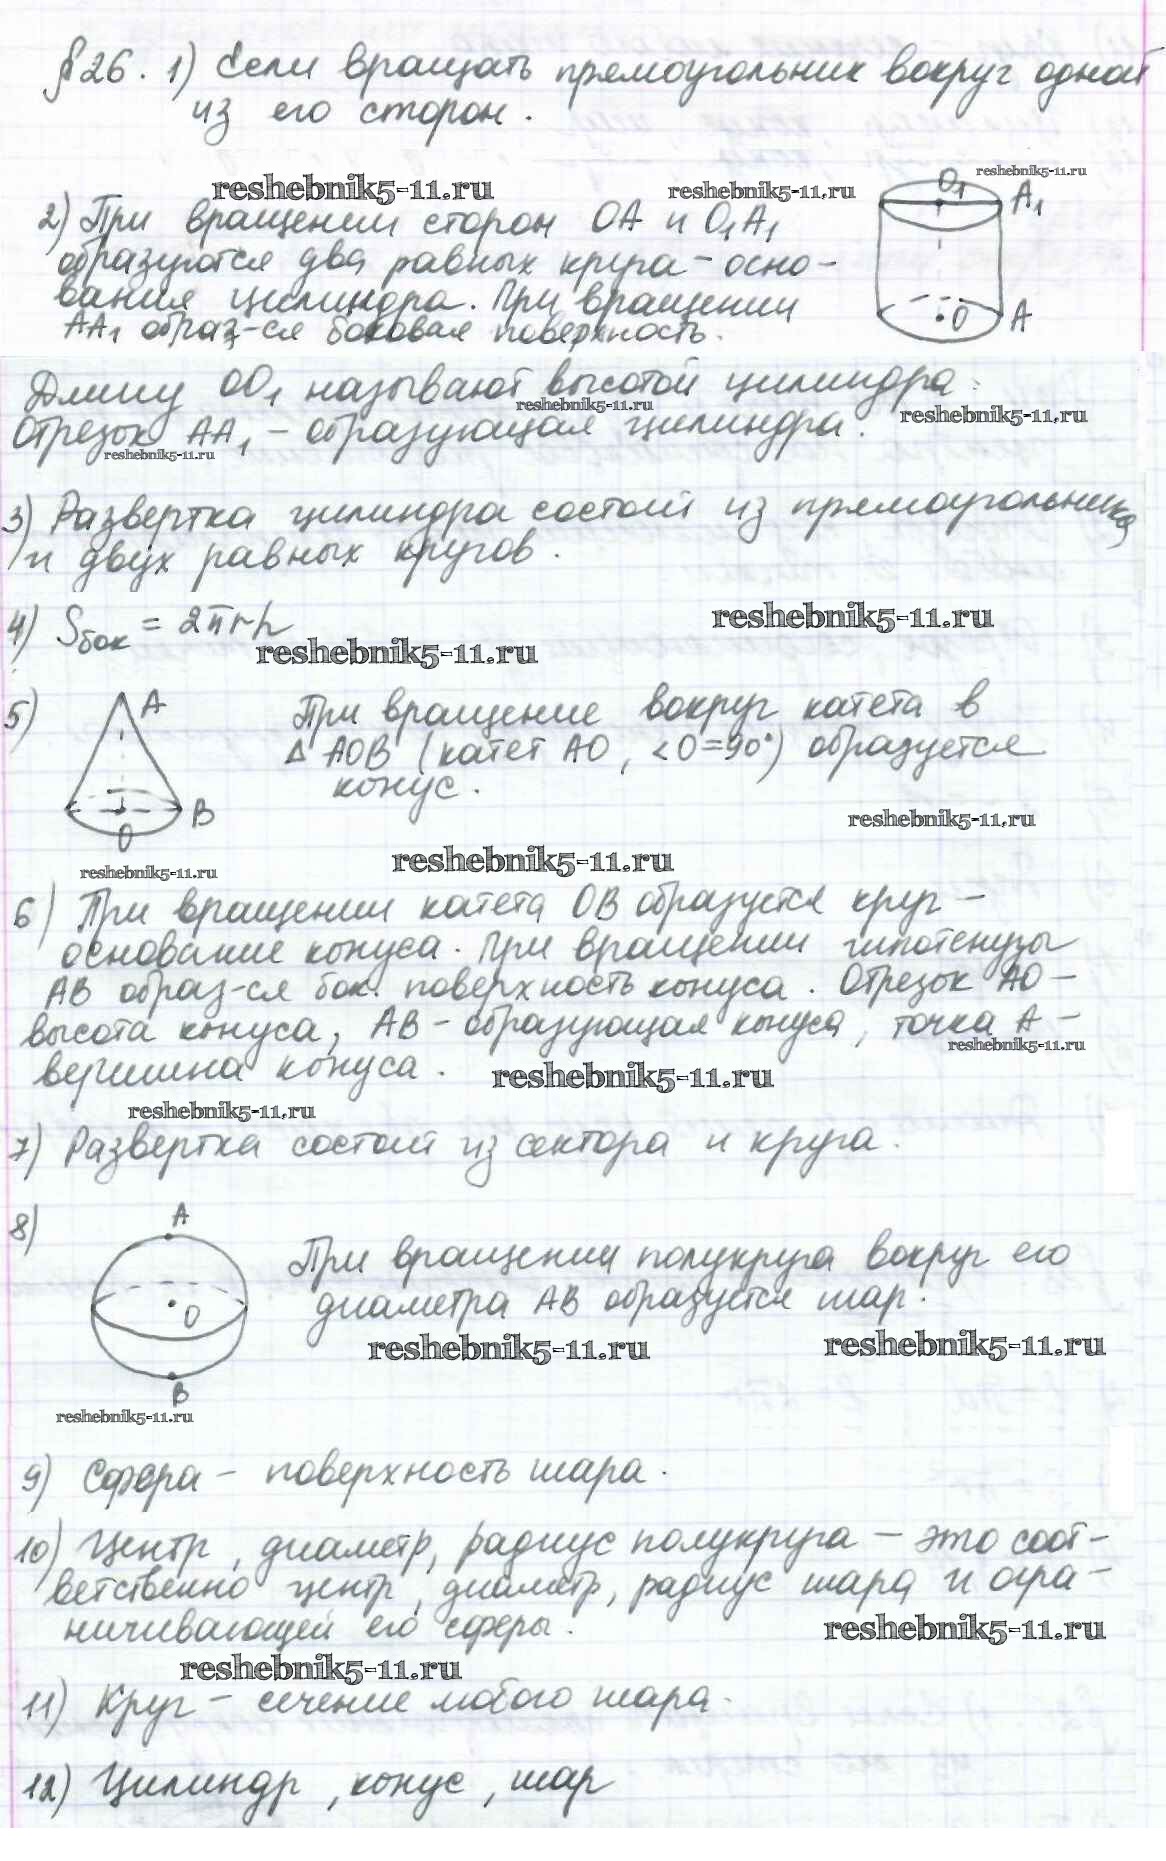 §26. 1) Если вращать прямоугольник вокруг одной
из его сторон.
reshebnik5-11.ru
reshebnik5-11.ru
reshebnik5-11.ru
O₁ A₁
2) При вращении сторон OA и O₁A₁
образуются два равных круга - осно-
вания цилиндра. При вращении
AA₁ образ-ся боковая поверхность.
O A
Длину OO₁ называют высотой цилиндра.
reshebnik5-11.ru
reshebnik5-11.ru
Отрезок AA₁ - образующая цилиндра.
reshebnik5-11.ru
3) Развертка цилиндра состоит из прямоугольника
и двух равных кругов.
4) Sбок = 2πrh
reshebnik5-11.ru
reshebnik5-11.ru
5) A
B
O
При вращение вокруг катета в
Δ AOB (катет AO, <O=90°) образуется
конус.
reshebnik5-11.ru
reshebnik5-11.ru
reshebnik5-11.ru
6) При вращении катета OB образуется круг -
основание конуса. При вращении гипотенузы
AB образ-ся бок. поверхность конуса. Отрезок AO -
высота конуса, AB - образующая конуса, точка A -
reshebnik5-11.ru
вершина конуса.
reshebnik5-11.ru
reshebnik5-11.ru
7) Развертка состоит из сектора и круга.
8) A
O
B
При вращении полукруга вокруг его
диаметра AB образуется шар.
reshebnik5-11.ru
reshebnik5-11.ru
reshebnik5-11.ru
9) Сфера - поверхность шара.
10) Центр, диаметр, радиус полукруга - это соот-
ветственно центр, диаметр, радиус шара и огра-
ничивающей его сферы.
reshebnik5-11.ru
reshebnik5-11.ru
11) Круг - сечение любого шара.
12) Цилиндр, конус, шар